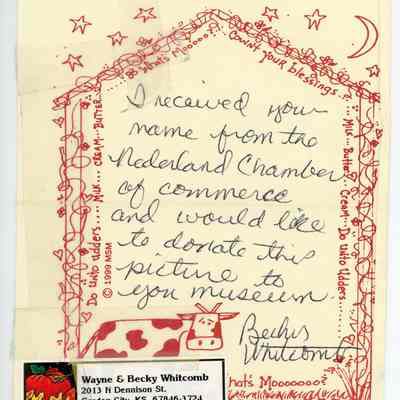 What's Moo????? Count your blessings....
Do Unto Udders.... Milk... Cream... Butter...
I received your
name from the
Nederland Chamber
of commerce
and would like
to donate this
picture to
you museum.
Becky
Whitcomb
Milk... Butter... Cream... Do Unto Udders....
© 1999 MSM
hat's Moooooooo?
Wayne & Becky Whitcomb
2013 N Dennison St.
Garden City, KS 67846-3724